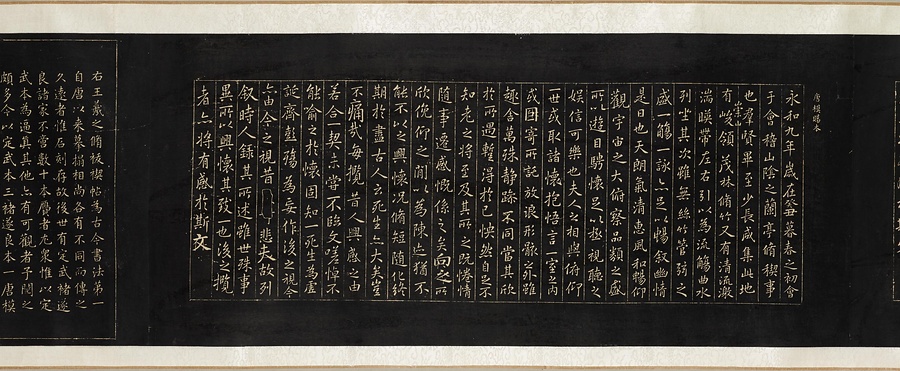 唐模賜本
永和九年歲在癸丑暮春之初會
于會稽山陰之蘭亭脩稧事
也羣賢畢至少長咸集此地
崇山
有峻領茂林脩竹又有清流激
湍暎帶左右引以為流觴曲水
列坐其次雖無絲竹管弦之
盛一觴一詠亦足以暢敘幽情
是日也天朗氣清惠風和暢仰
觀宇宙之大俯察品類之盛
所以遊目騁懷足以極視聽之
娛信可樂也夫人之相與俯仰
一世或取諸懷抱悟言一室之內
或因寄所託放浪形骸之外雖
趣舍萬殊靜躁不同當其欣
於所遇蹔得於己怏然自足不
知老之將至及其所之既惓情
隨事遷感慨係之矣向之所
欣俛仰之閒以為陳迹猶不
能不以之興懷況脩短隨化終
期於盡古人云死生亦大矣豈
不痛哉每攬昔人興感之由
若合一契未嘗不臨文嗟悼不
能喻之於懷固知一死生為虛
誕齊彭殤為妄作後之視今
亦由今之視昔悲夫故列
敘時人錄其所述雖世殊事
異所以興懷其致一也後之攬
者亦將有感於斯文
右王羲之脩稧帖為古今書法第一
自唐以來摹搨相尚各有不同而傳之
久遠者惟石刻存故後世有定武褚遂
良諸家不啻數十本贗者尤衆惟以定
武本為逼真其他亦有可觀者予閱之
頗多今以定武本三褚遂良本一唐模